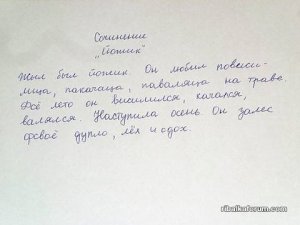 Сочинение
"Йожик"
Жыл был йожик. Он любил повиси-
лица, пакачаца, паваляца на траве.
Фсё лето он висилился, качался,
валялся. Наступила осень. Он залес
фсваё дупло, лёх и сдох.
ribalkaforum.com